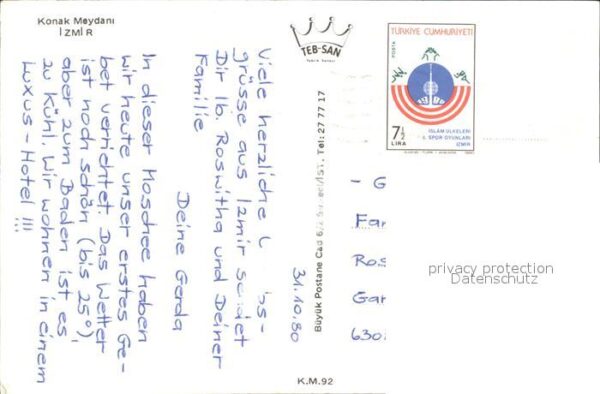 Konak Meydanı
İZMİR
TEB-SAN
Büyük Postane Cad Tel: 27 77 17
K.M.92
TÜRKİYE CUMHURİYETİ
POSTA
7½
LİRA
İSLAM ÜLKELERİ
I. SPOR OYUNLARI
İZMİR
31.10.80
Viele herzliche
grüsse aus Izmir sendet
Dir lb. Roswitha und Deiner
Familie
Deine Gerda
In dieser Moschee haben
wir heute unser erstes Ge-
bet verrichtet. Das Wetter
ist noch schön (bis 25°),
aber zum Baden ist es
zu kühl. Wir wohnen in einem
Luxus-Hotel !!!
- G
Fam
Ros
Gar
630
privacy protection
Datenschutz